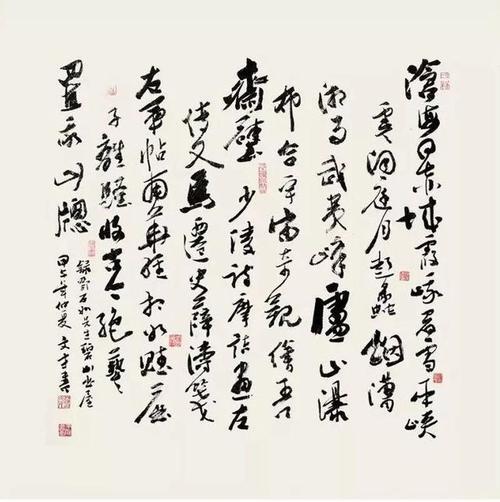 滄海日赤城霞峨眉雪巫峽
雲洞庭月彭蠡煙瀟
湘雨武夷峰廬山瀑
布合宇宙奇觀繪吾
齋壁少陵詩摩詰畫左
傳文馬遷史薛濤箋
右軍帖南華經相如賦屈
子離騷收古今絕藝
置我山牕
錄鄧石如先生碧山書屋
甲午年仲夏文書